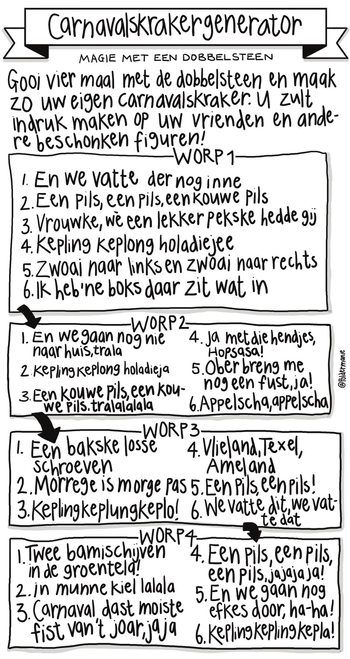 Carnavalskrakergenerator
MAGIE MET EEN DOBBELSTEEN
Gooi vier maal met de dobbelsteen en maak
zo uw eigen carnavalskraker. U zult
indruk maken op uw vrienden en ande-
re beschonken figuren!
WORP 1
1. En we vatte der nog inne
2. Een pils, een pils, een kouwe pils
3. Vrouwke, wè een lekker pekske hedde gij
4. Kepling keplong holadiejee
5. Zwoai naar links en zwoai naar rechts
6. Ik heb 'ne boks daar zit wat in
WORP 2
1. En we gaan nog nie
naar huis, trala
2. Kepling keplong holadieja
3. Een kouwe pils, een kou-
we pils. tralalalala
4. Ja met die hendjes,
Hopsasa!
5. Ober breng me
nog een fust, ja!
6. Appelscha, appelscha
@foldermanie
WORP 3
1. Een bakske losse
schroeven
2. Morrege is morge pas
3. Keplingkeplungkeplo!
4. Vlieland, Texel,
Ameland
5. Een pils, een pils!
6. We vatte dit, we vat-
te dat
WORP 4
1. Twee bamischijven
in de groentela!
2. in munne kiel lalala
3. Carnaval dast moiste
fist van't joar, jaja
4. Een pils, een pils,
een pils, jajajaja!
5. En we gaan nog
efkes door, ha-ha!
6. Keplingkeplingkepla!